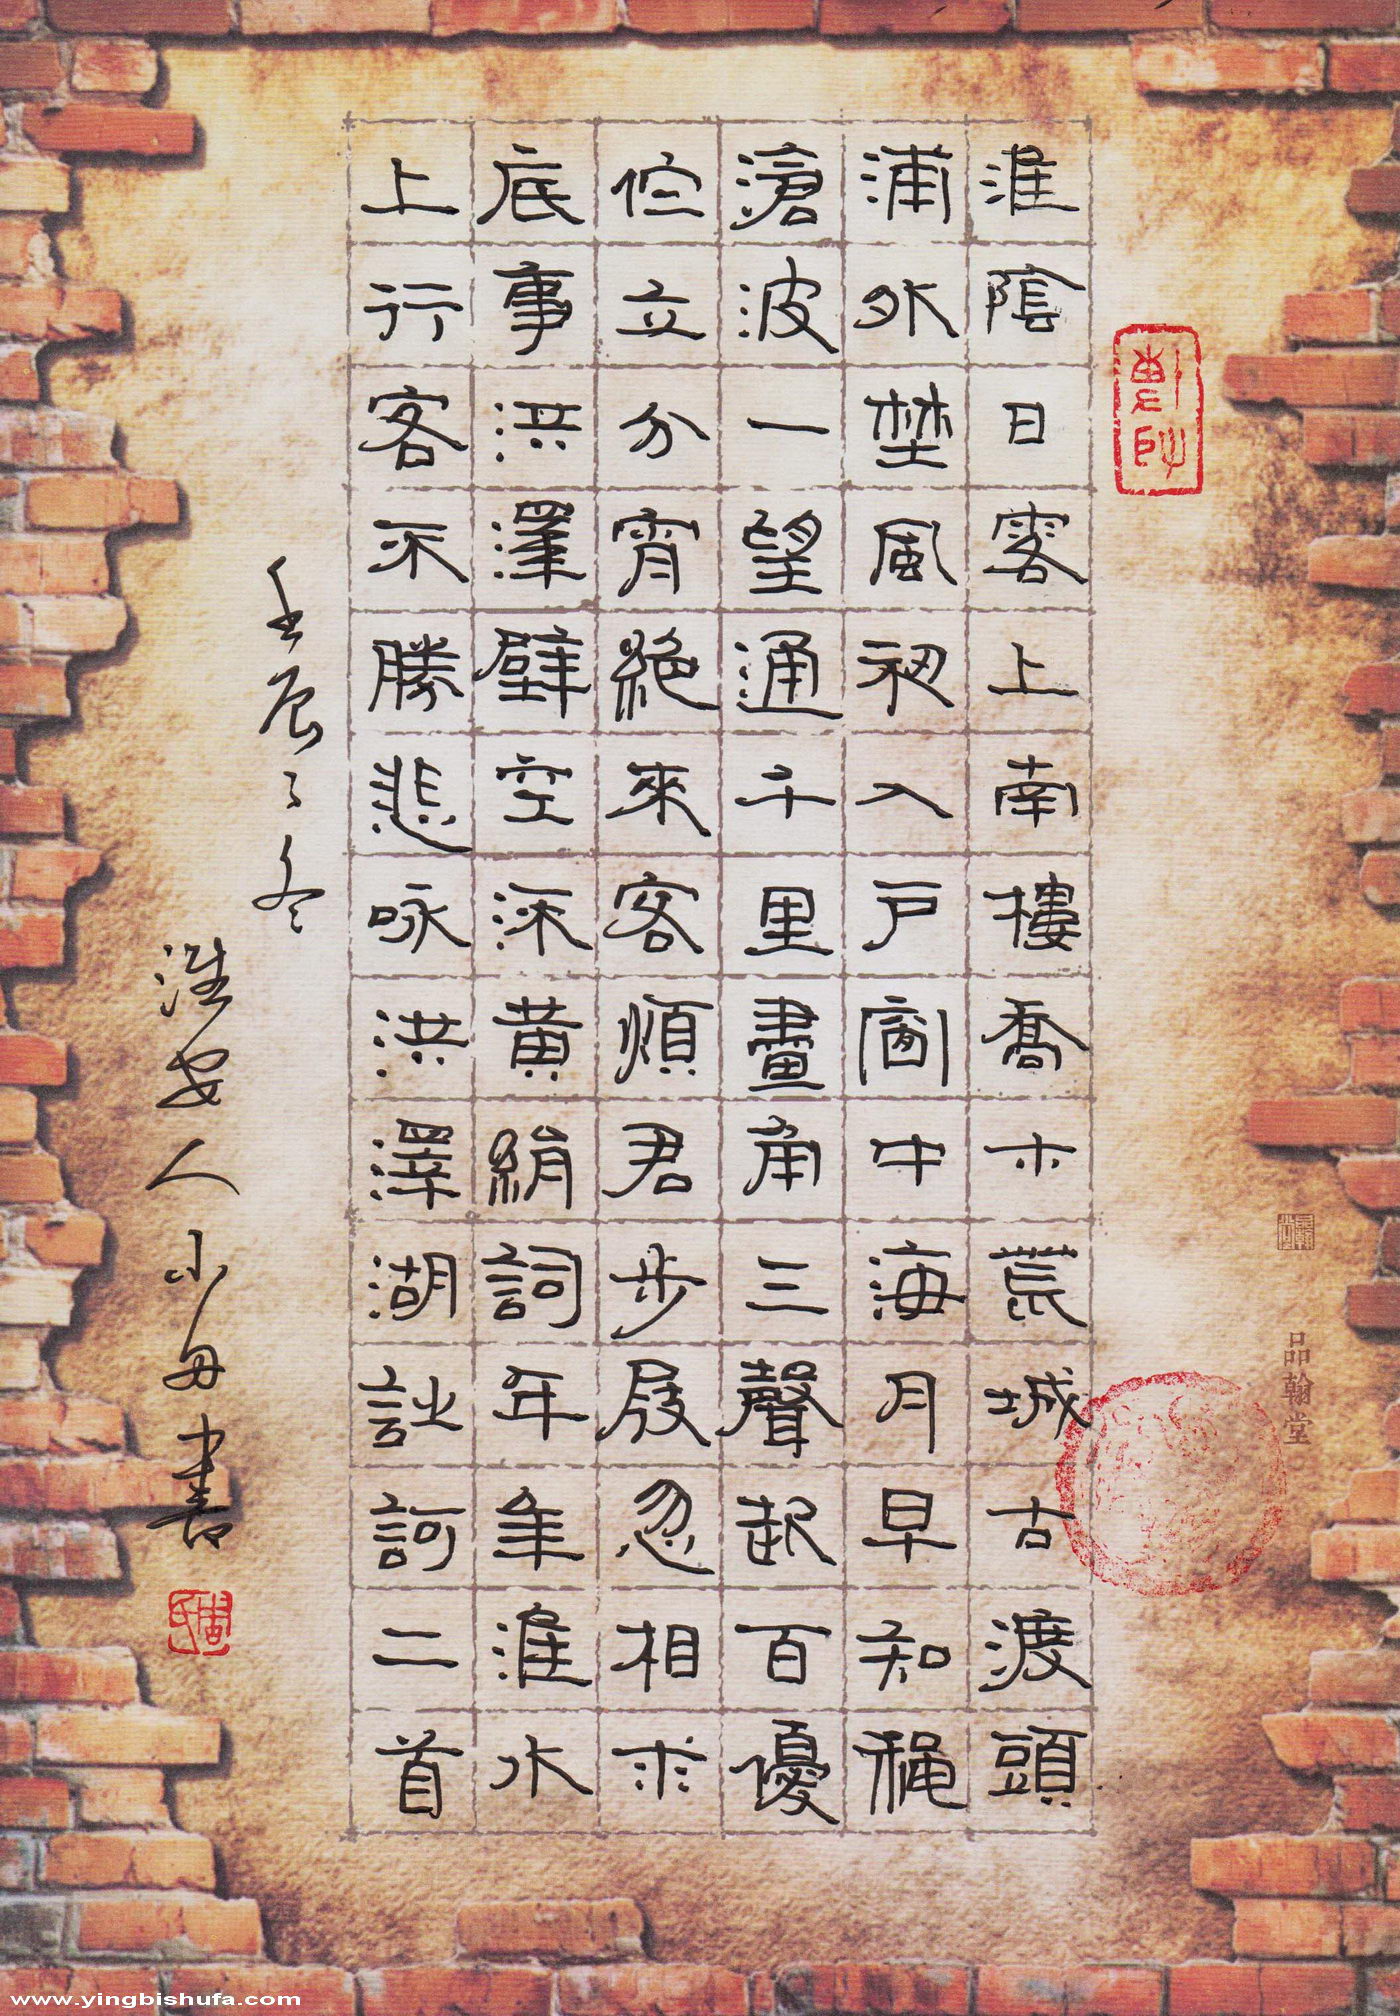 淮陰日落上南樓喬木荒城古渡頭
浦外埜風初入戶窗中海月早知穐
滄波一望通千里畫角三聲起百優
佇立分宵絕來客煩君步屐忽相求
底事洪澤壁空黃絹詞年年淮水
上行客不勝悲咏洪澤湖訿訶二首
壬辰之冬
淮安人小毋書
品翰堂
www.yingbishufa.com